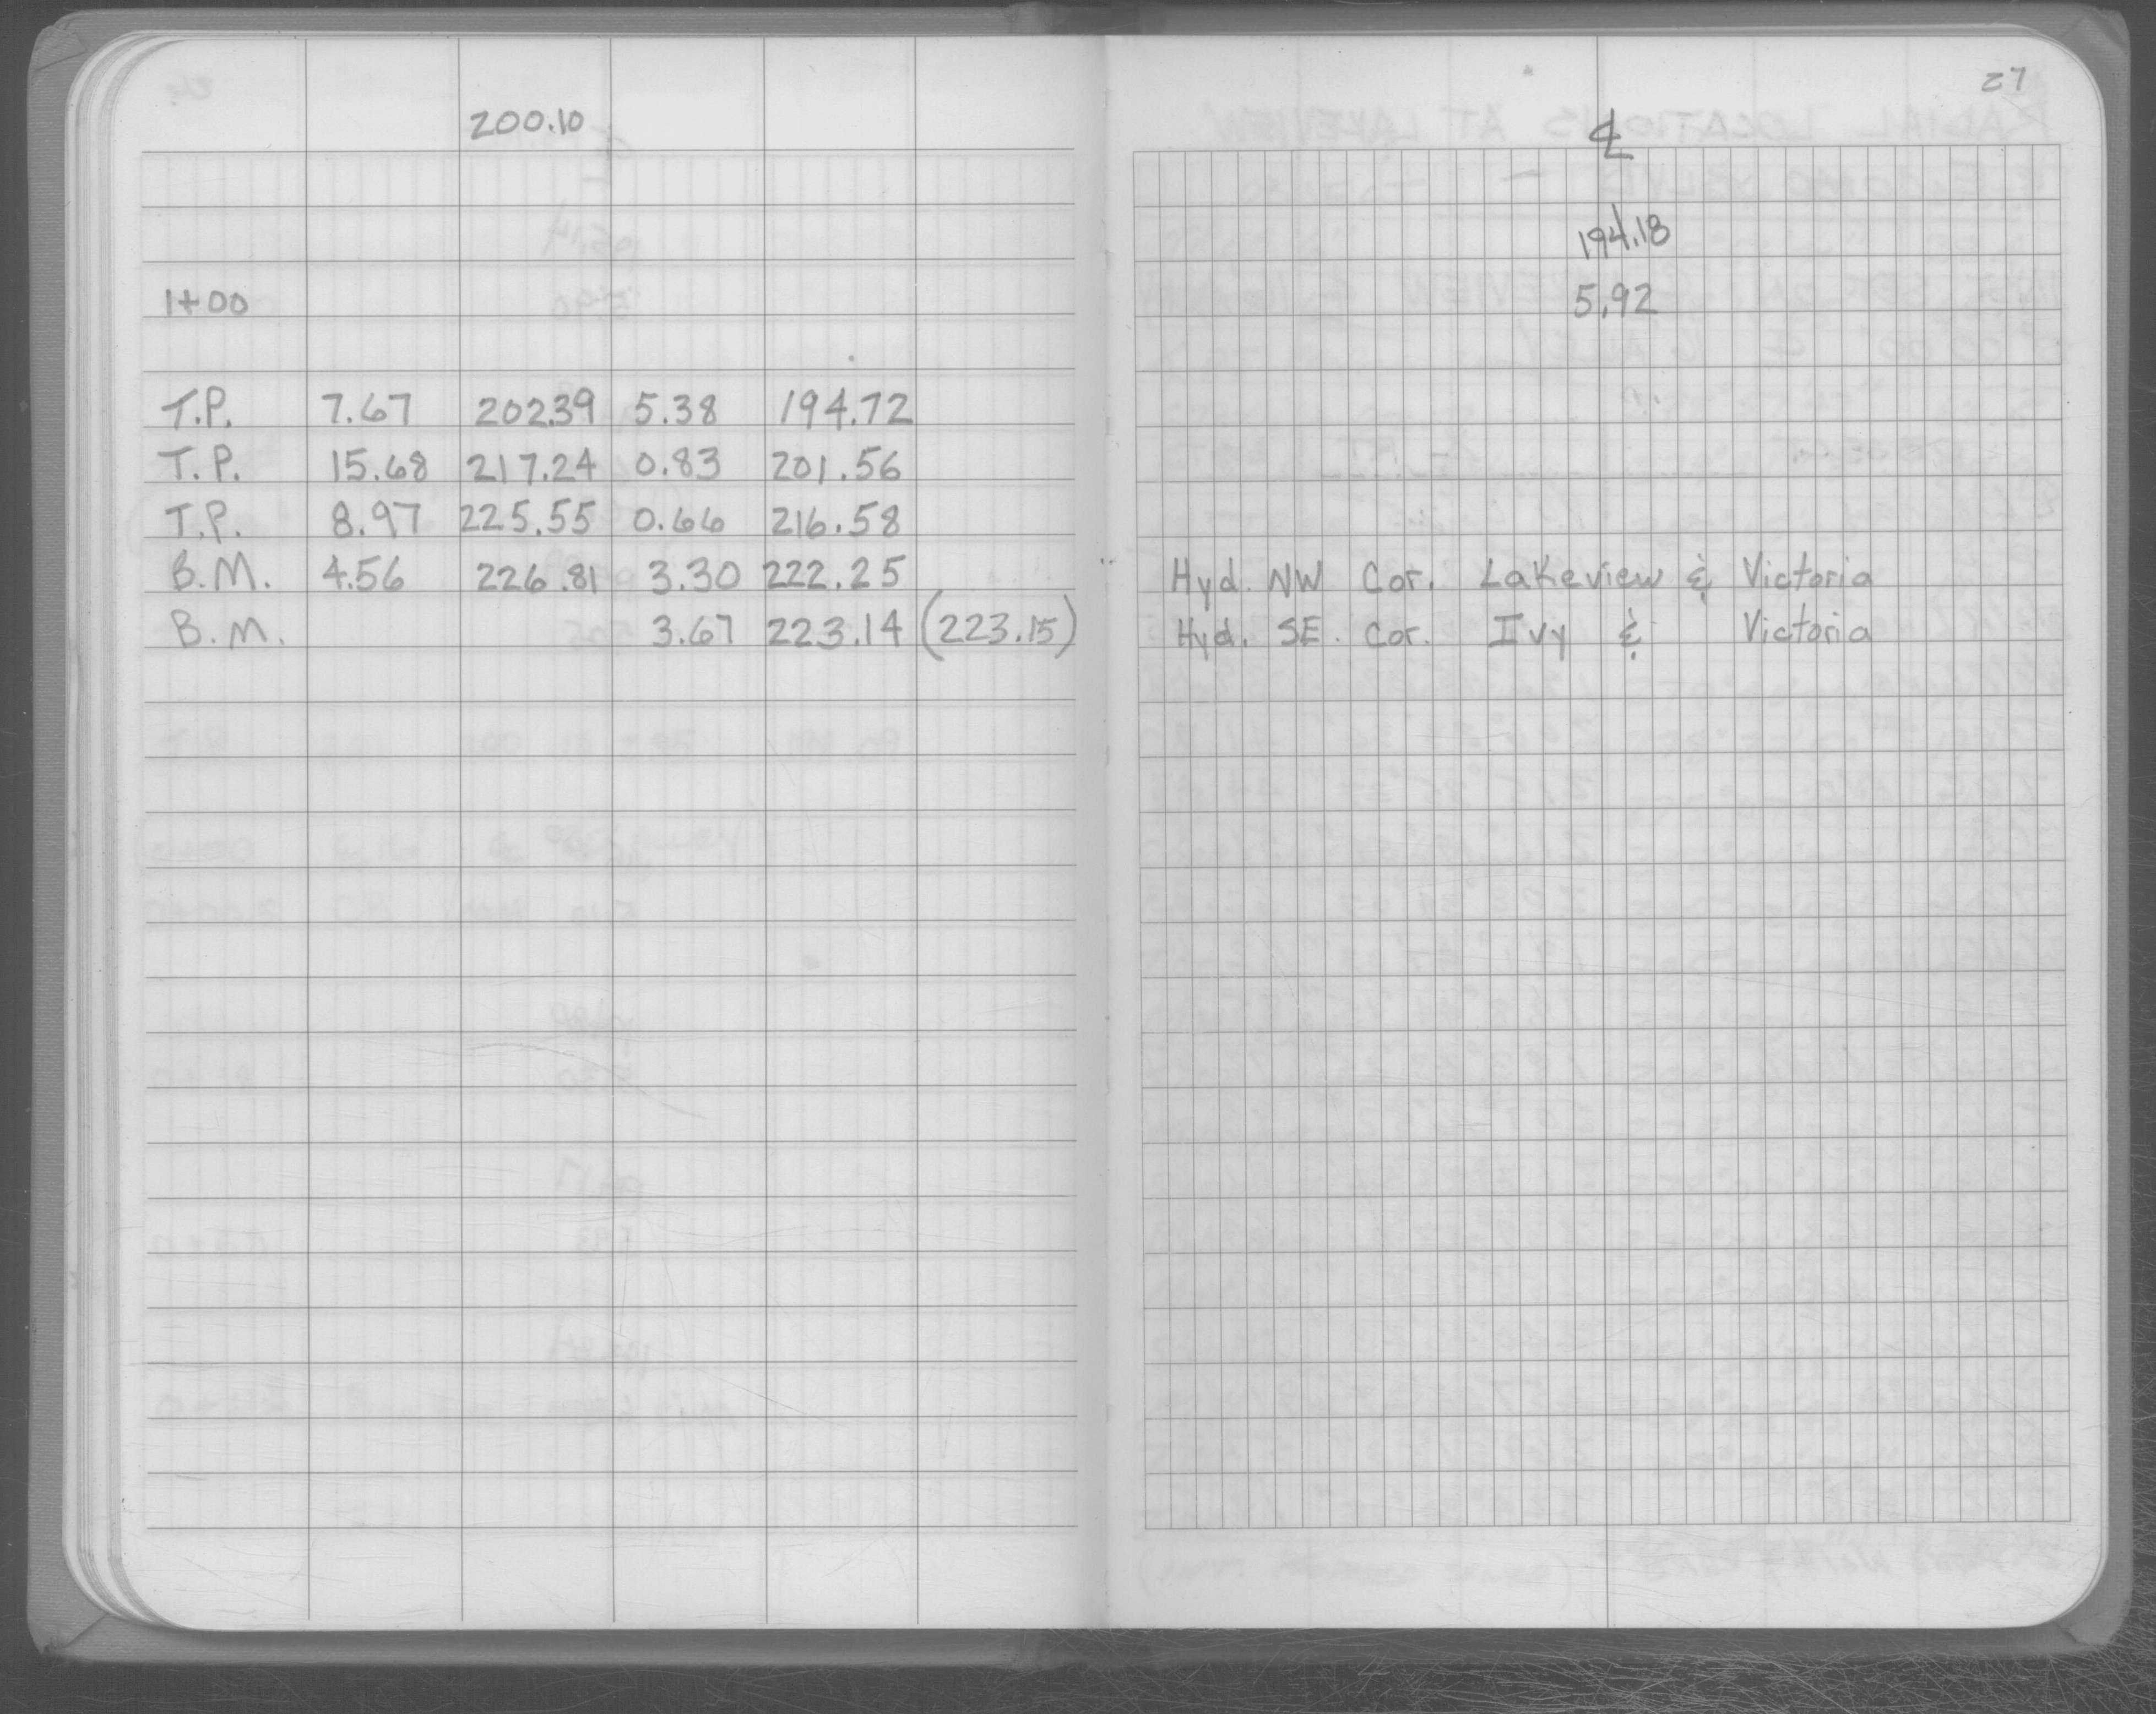 27
200.10 ℄
194.18
1+00 5.92
T.P. 7.67 202.39 5.38 194.72
T.P. 15.68 217.24 0.83 201.56
T.P. 8.97 225.55 0.66 216.58
B.M. 4.56 226.81 3.30 222.25 Hyd. NW Cor. Lakeview & Victoria
B.M. 3.67 223.14 (223.15) Hyd. SE. Cor. Ivy & Victoria